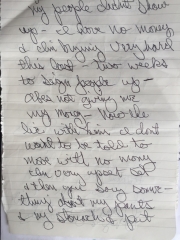 my people didnt show
up - I have no money
& Im trying very hard
this last two weeks
to sign people up -
Abes not giving me
my money - Now the
lie with him. I dont
want to be told to
move with no money
Im very upset so
& then you say some-
thing about my pants
& my stomach I just